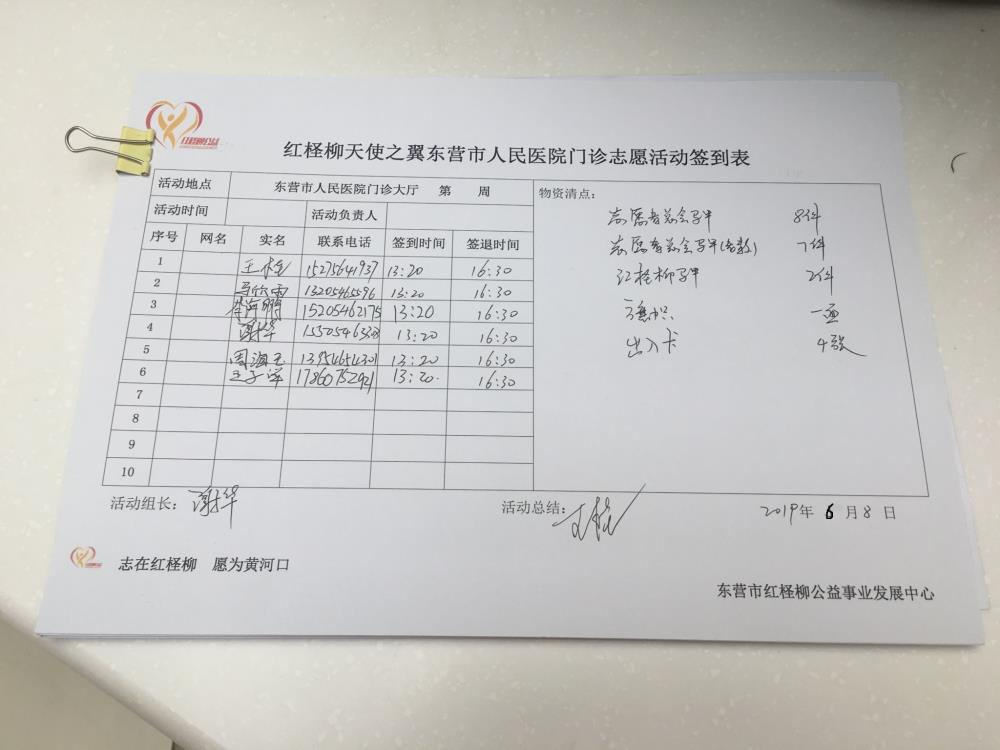 红柽柳公益
红柽柳天使之翼东营市人民医院门诊志愿活动签到表
活动地点 东营市人民医院门诊大厅 第 周
活动时间 活动负责人
序号 网名 实名 联系电话 签到时间 签退时间
1 15275641937 13:20 16:30
2 13205465596 13:20 16:30
3 15205462175 13:20 16:30
4 谢华 13:20 16:30
5 周海玉 13954654301 13:20 16:30
6 王子洋 17860752921 13:20 16:30
7
8
9
10
物资清点:
志愿者总会马甲 8件
志愿者总会马甲 7件
红柽柳马甲 2件
一面
出入卡 4张
活动组长: 谢华
活动总结:
2019年 6 月 8 日
志在红柽柳 愿为黄河口
东营市红柽柳公益事业发展中心